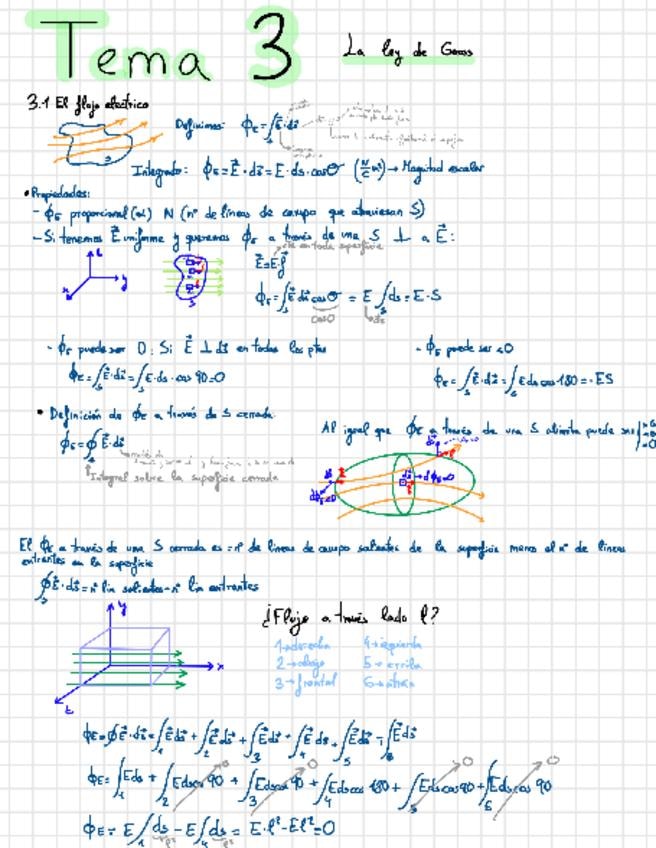 Tema 3
La ley de Gauss
3.1 El flujo eléctrico
Definimos: ϕ_E = ∫_s E⃗·ds⃗
Integrado: ϕ_E = E⃗·ds⃗ = E·ds·cosθ (N/C m²) → Magnitud escalar
• Propiedades:
- ϕ_E proporcional (α) N (nº de líneas de campo que atraviesan S)
- Si tenemos E⃗ uniforme y queremos ϕ_E a través de una S ⊥ a E⃗:
cte en toda superficie
z
y
x
S
ϕ_E = ∫_s E ds cosθ = E ∫_s ds = E·S
cos0
- ϕ_E puede ser 0: Si E⃗ ⊥ ds⃗ en todos los ptos
ϕ_E = ∫_s E⃗·ds⃗ = ∫_s E·ds·cos 90 = 0
- ϕ_E puede ser <0
ϕ_E = ∫_s E⃗·ds⃗ = ∫_s E ds cos 180 = -ES
• Definición de ϕ_E a través de S cerrada
ϕ_E = ∮_s E⃗·ds⃗
Integral sobre la superficie cerrada
Al igual que ϕ_E a través de una S abierta puede ser >0 =0 <0
dϕ_E=0
El ϕ_E a través de una S cerrada es = nº de líneas de campo salientes de la superficie menos el nº de líneas
entrantes en la superficie
∮_s E⃗·ds⃗ = nº lin salientes - nº lin entrantes
y
x
z
¿Flujo a través lado l?
1→derecha 4→izquierda
2→abajo 5→arriba
3→frontal 6→atrás
ϕ_E = ∮ E⃗·ds⃗ = ∫_1 E⃗ds⃗ + ∫_2 E⃗ds⃗ + ∫_3 E⃗ds⃗ + ∫_4 E⃗ds⃗ + ∫_5 E⃗ds⃗ + ∫_6 E⃗ds⃗
ϕ_E = ∫_1 Eds + ∫_2 Edscos 90 + ∫_3 Edscos 90 + ∫_4 Edscos 180 + ∫_5 Edscos 90 + ∫_6 Edscos 90
0 0 0 0
ϕ_E = E∫_1 ds - E∫_4 ds = E·l² - El² = 0
l² l²